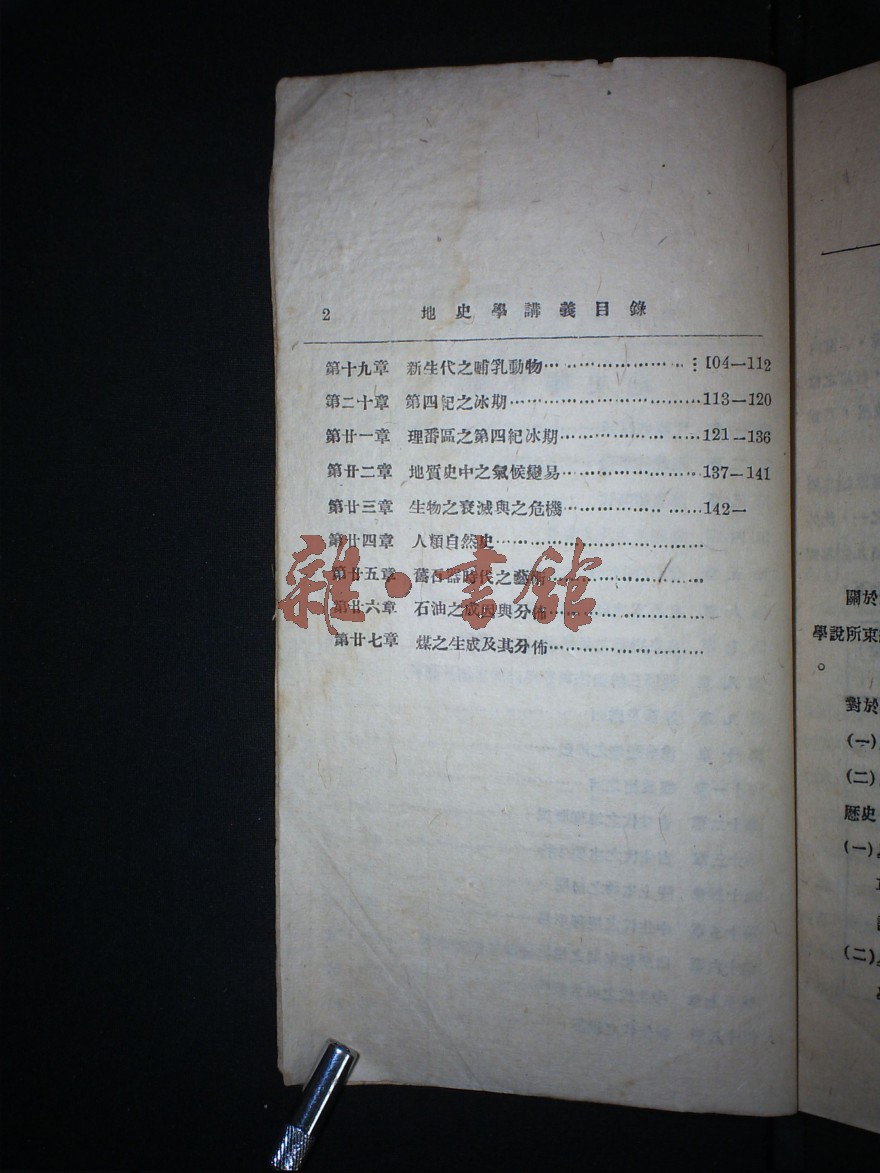 2 地史學講義目錄
第十九章 新生代之哺乳動物…………………104—112
第二十章 第四紀之冰期…………………113—120
第廿一章 理番區之第四紀冰期…………………121—136
第廿二章 地質史中之氣候變易…………………137—141
第廿三章 生物之衰滅與之危機…………………142—
第廿四章 人類自然史…………………
第廿五章 舊石器時代之藝術…………………
第廿六章 石油之成因與分佈…………………
第廿七章 煤之生成及其分佈…………………
雜·書館
關於
學說所東
。
對於
(一)
(二)
歷史
(一)
(二)